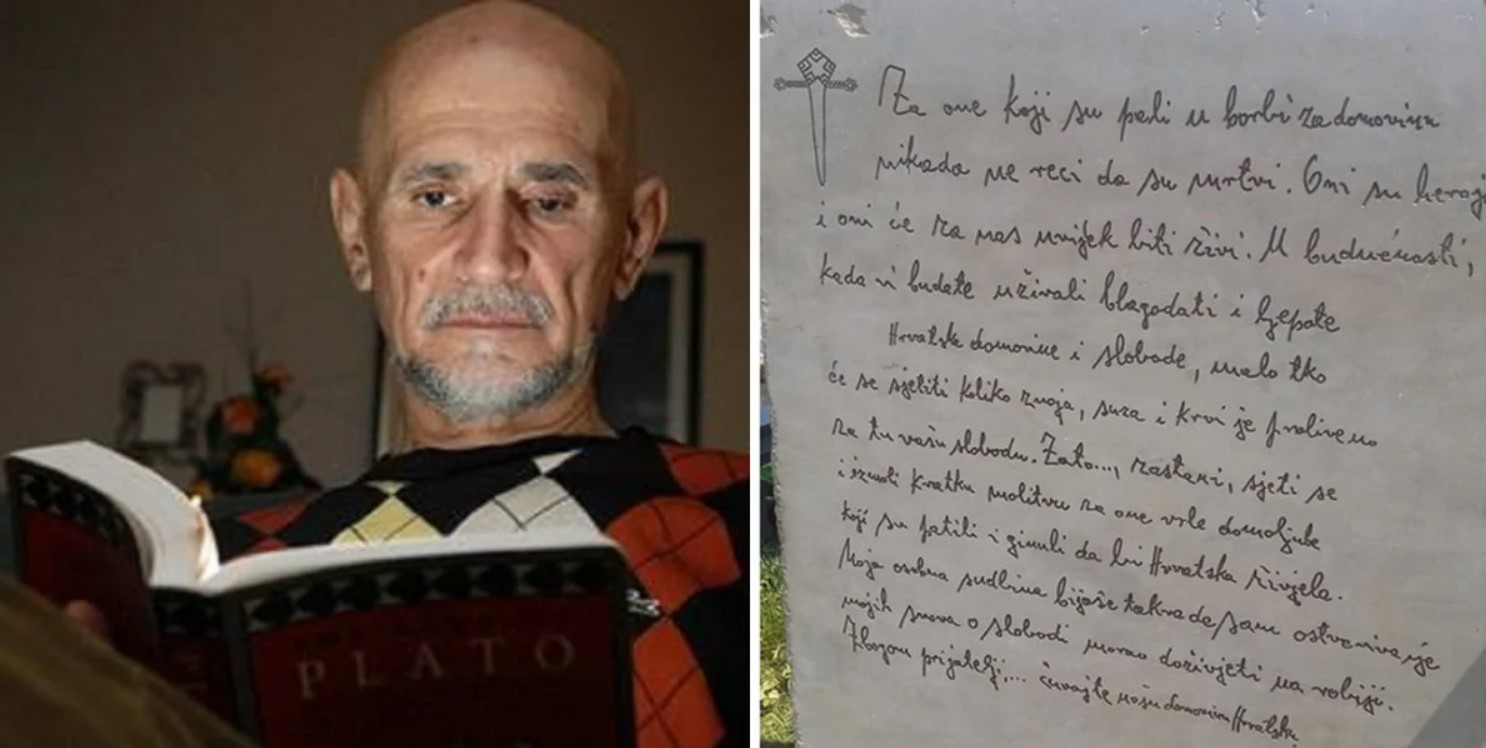 PLATO
Za one koji su pali u borbi za domovinu
nikada ne reci da su mrtvi. Oni su heroji
i oni će za nas uvijek biti živi. U budućnosti,
kada vi budete uživali blagodati i ljepote
Hrvatske domovine i slobode, malo tko
će se sjetiti koliko znoja, suza i krvi je proliveno
za tu vašu slobodu. Zato..., zastani, sjeti se
i izmoli kratku molitvu za one vrle domoljube
koji su patili i ginuli da bi Hrvatska živjela.
Moja osobna sudbina bijaše takva da sam ostvarivanje
mojih snova o slobodi morao doživjeti na robiji.
Zbogom prijatelji,... čuvajte našu domovinu Hrvatsku